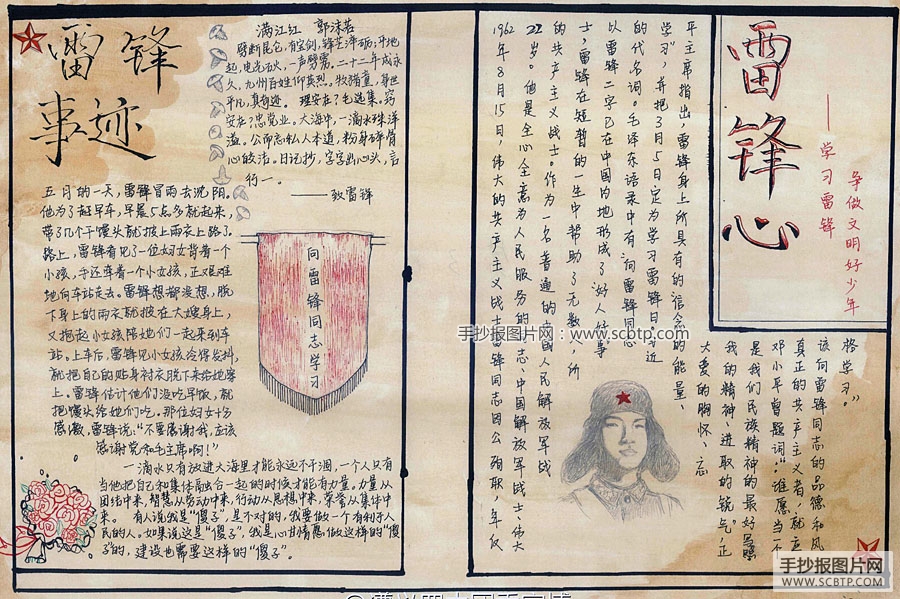 雷锋
事迹
满江红 郭沫若
劈断昆仑,有宝剑,锋芒淬砺;平地
起,电光石火,一声劈雳。二十二年成永
久,九州百姓仰英烈。牧猪童,身世
平凡,真奇迹。理安在?毛选集,窍
安在?忠党业。大海中,一滴水珠洋
溢。公而忘私人本道,粉身碎骨
心皎洁。日记抄,字字出心头,言
行一。
——致雷锋
五月的一天,雷锋冒雨去沈阳。
他为了赶早车,早晨5点多就起来,
带了几个干馒头就披上雨衣上路了。
路上,雷锋看见了一位妇女背着一个
小孩,手还牵着一个小女孩,正艰难
地向车站走去。雷锋想都没想,脱
下身上的雨衣就披在大嫂身上,
又抱起小女孩陪她们一起来到车
站。上车后,雷锋见小女孩冷得发抖,
就把自己的贴身衬衣脱下来给她穿
上。雷锋估计他们没吃早饭,就
把馒头给她们吃。那位妇女十分
感激,雷锋说:“不要感谢我,应该
感谢党和毛主席啊!”
向雷锋同志学习
一滴水只有放进大海里才能永远不干涸,一个人只有
当他把自己和集体融合一起的时候才能有力量。力量从
团结中来,智慧从劳动中来,行动从思想中来,荣誉从集体中
来。 有人说我是“傻子”,是不对的,我要做一个有利于人
民的人。如果说这是“傻子”,我是心甘情愿做这样的“傻
子”的,建设也需要这样的“傻子”。
雷锋心
——学习雷锋
争做文明好少年
1962年8月15日,伟大的共产主义战士雷锋同志因公殉职,年仅
22岁。他是全心全意为人民服务的同志、中国解放军战士伟大
的共产主义战士。作为一名普通的中国人民解放军战
士,雷锋在短暂的一生中帮助了无数人,所
以雷锋二字已在中国内地形成了好人好事
的代名词。毛泽东语录中有“向雷锋同志
学习”,并把3月5日定为学习雷锋日。近
平主席指出,雷锋身上所具有的信念的能量、
大爱的胸怀、忘
我的精神、进取的锐气,正
是我们民族精神的最好写照
邓小平曾题词:“谁愿当一个
真正的共产主义者,就应
该向雷锋同志的品德和风
格学习。”
手抄报图片网:www.scbtp.com
手抄报图片网
WWW.SCBTP.COM